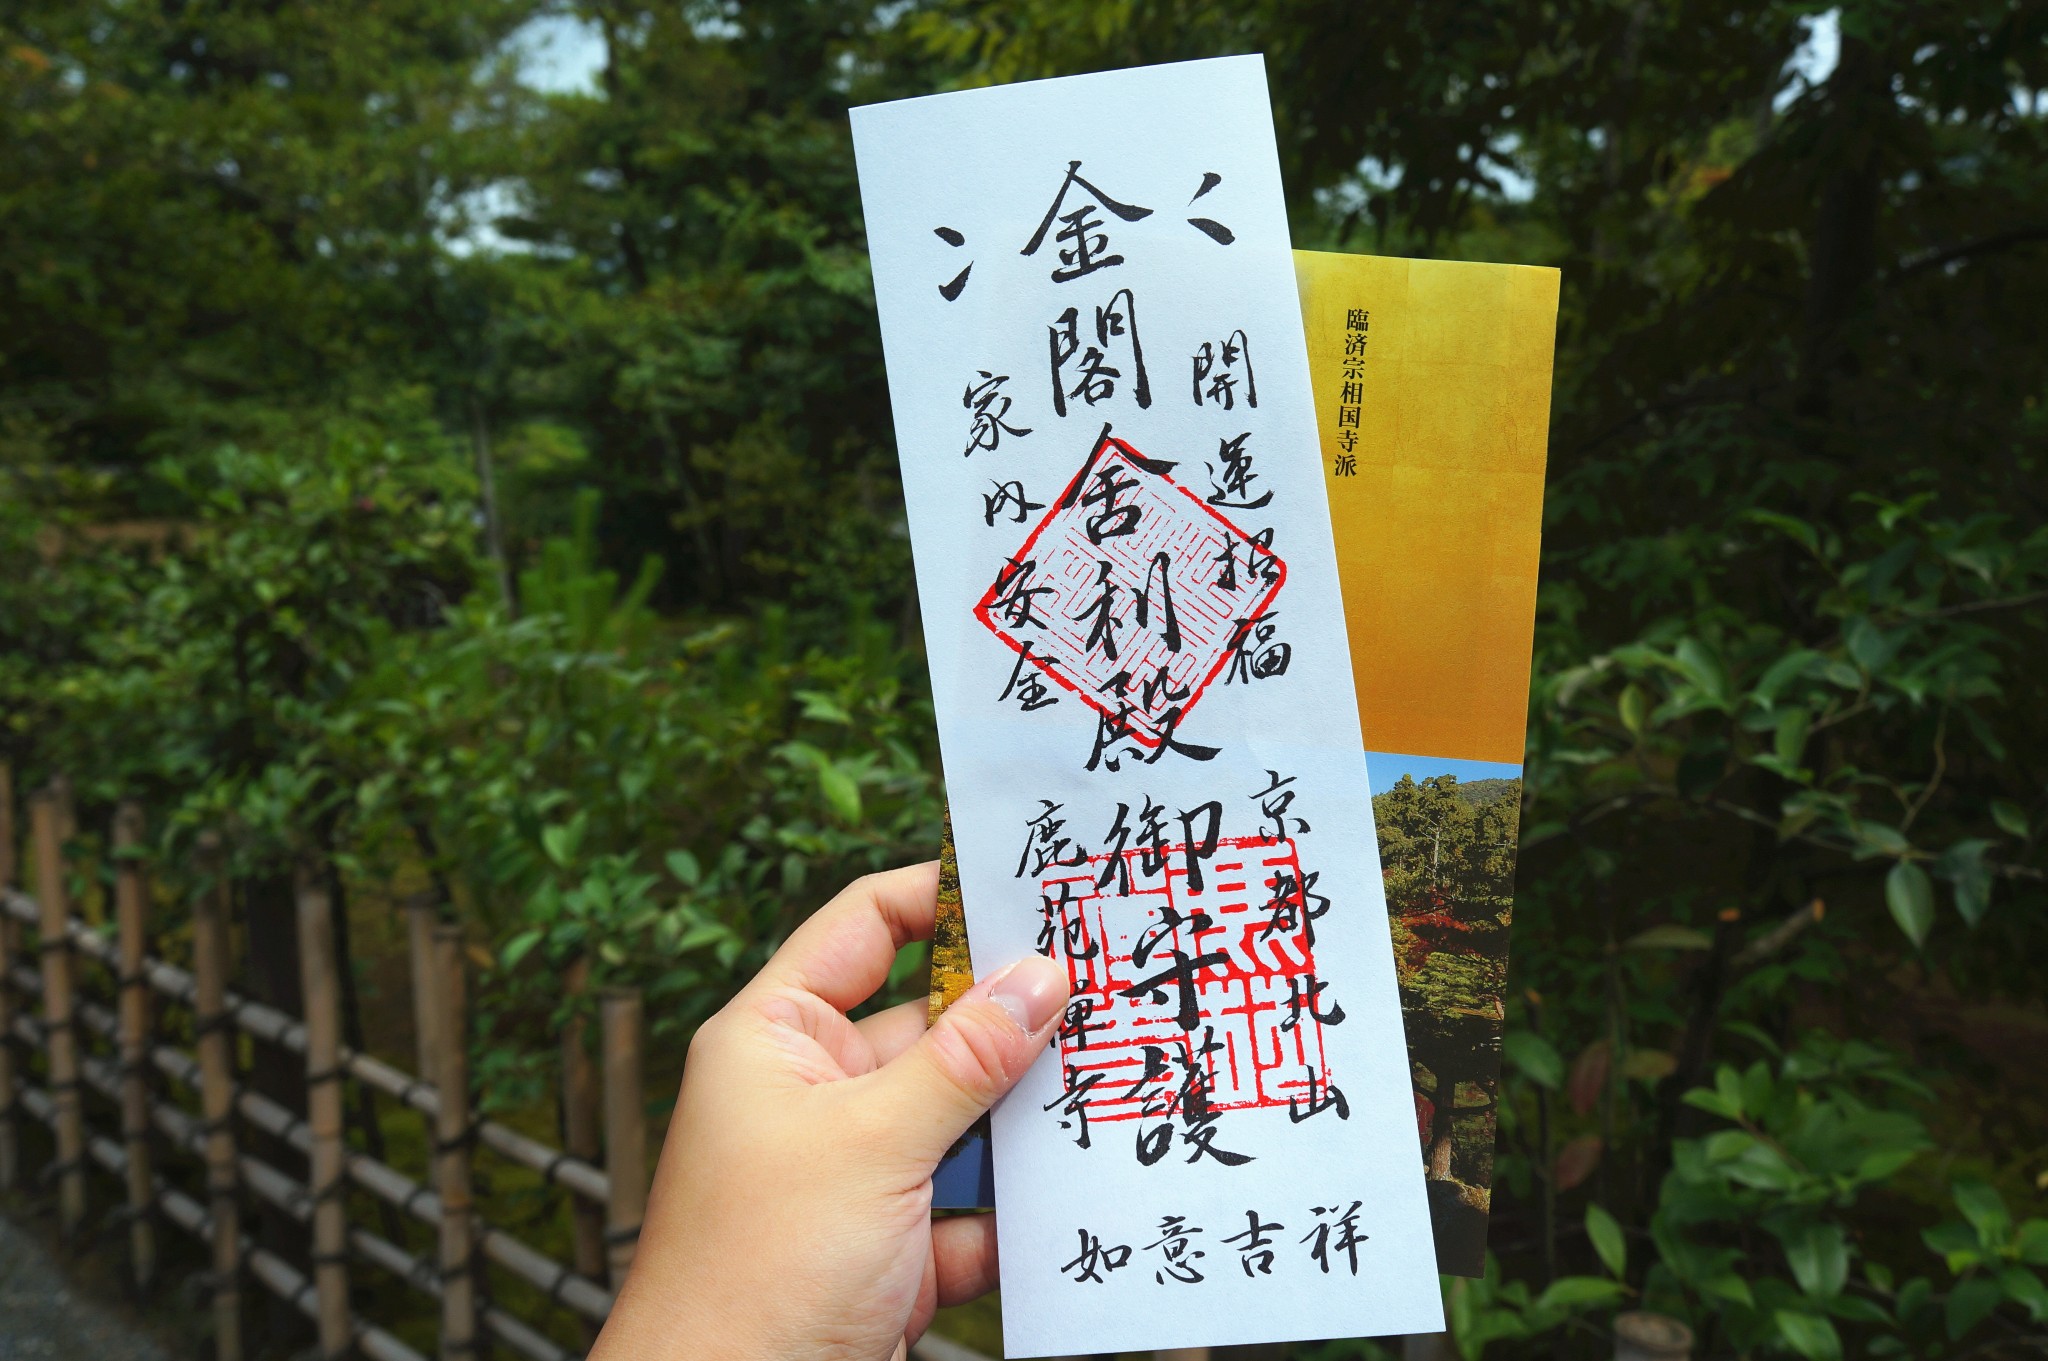 開運招福
京都北山
金閣舎利殿
御守護
家内安全
鹿苑禅寺
如意吉祥
臨済宗相国寺派